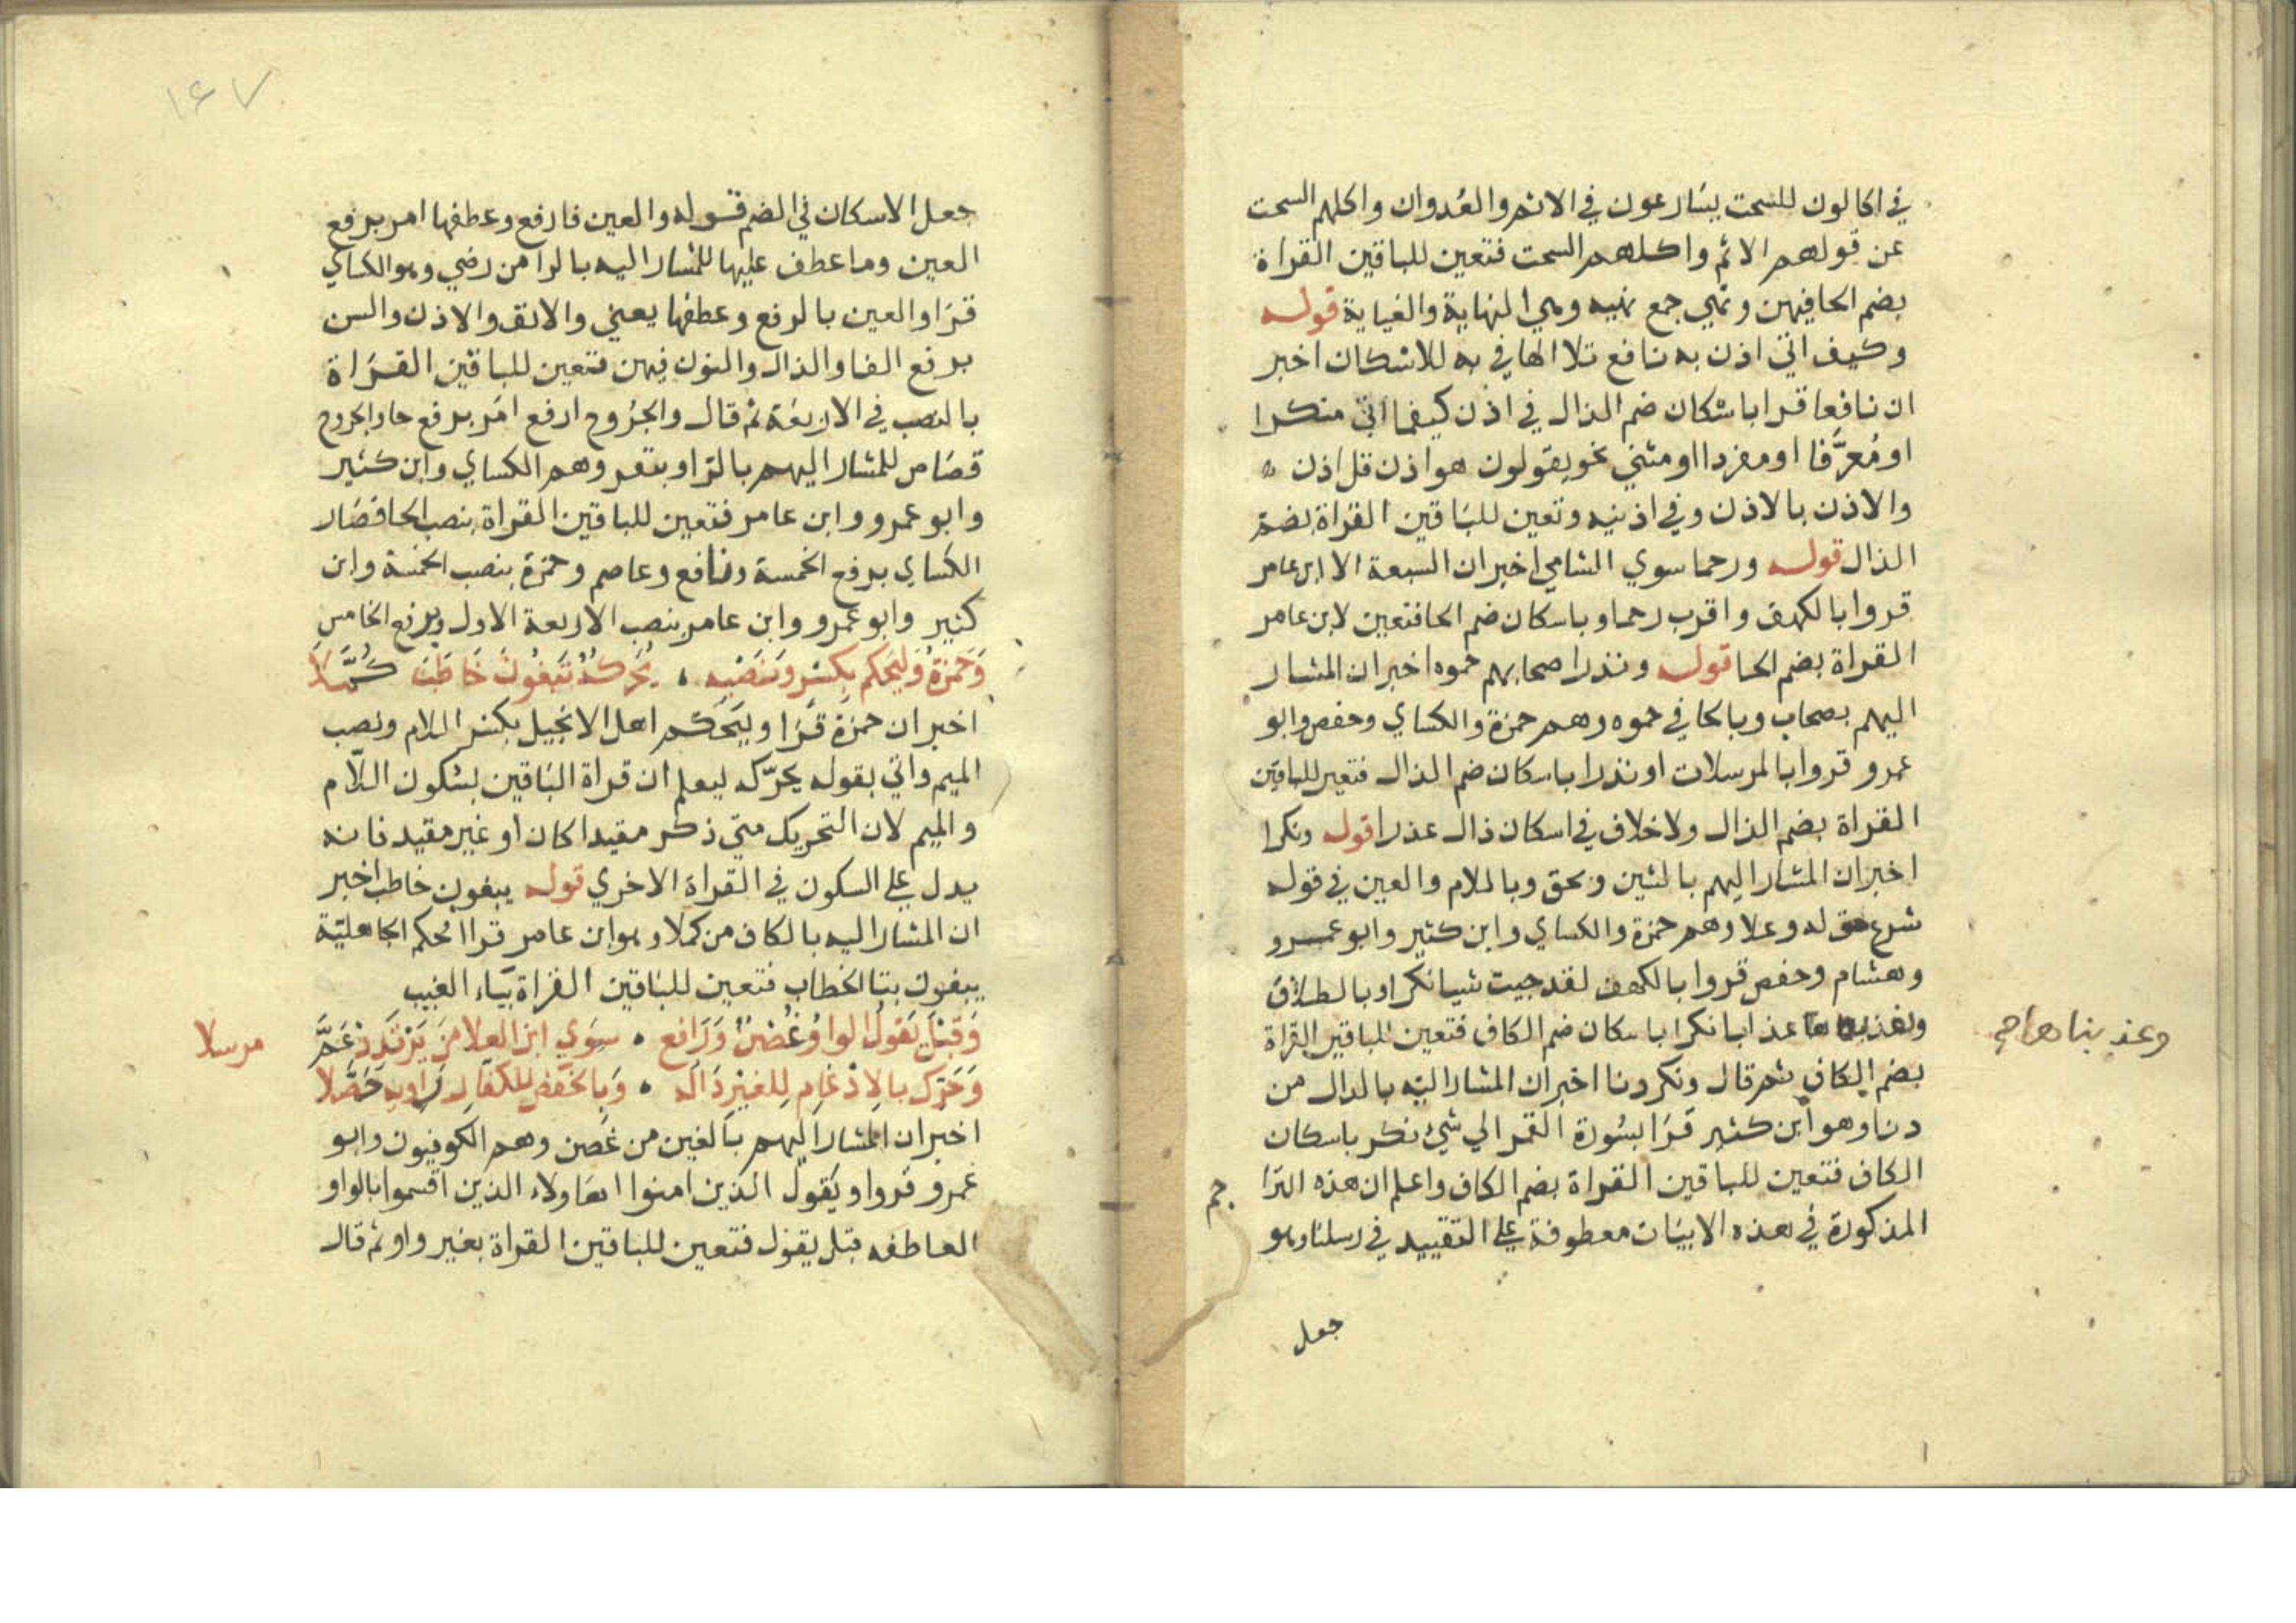 في اكالون للسحت يسارعون في الاثم والعدوان واكلهم السحت
عن قولهم الاثم واكلهم السحت فتعين للباقين القراة
بضم الحا فيهن ونهي جمع نهيه وهي النهاية والغياية قوله
وكيف اتي اذن به نافع تلا الها في به للاسكان اخبر
ان نافعا قرا باسكان ضم الذال في اذن كيفما اتي منكرا
او معرّفا او مفردا او مثني نحو يقولون هو اذن قل اذن
والاذن بالاذن وفي اذنيه وتعين للباقين القراة بضم
الذال قوله ورحما سوي الشامي اخبر ان السبعة الا ابن عامر
قروا بالكهف واقرب رحما وباسكان ضم الحا فتعين لابن عامر
القراة بضم الحا قوله ونذرا صحابهم حموه اخبر ان المشار
اليهم بصحاب وبالحا في حموه وهم حمزة والكساي وحفص وابو
عمرو قروا بالمرسلات او نذرا باسكان ضم الذال فتعين للباقين
القراة بضم الذال ولا خلاف في اسكان ذال عذرا قوله ونكرا
اخبر ان المشار اليهم بالشين وبحق وبالام والعين في قوله
شرع حق له وعلا وهم حمزة والكساي وابن كثير وابو عمرو
وهشام وحفص قروا بالكهف لقد جيت شيا نكرا وبالطلاق
عذابا نكرا باسكان ضم الكاف فتعين للباقين القراة
وعذبناها صح
بضم الكاف ثم قال ونكر دنا اخبر ان المشار اليه بالدال من
دنا وهو ابن كثير قرا بسورة القمر الي شئ نكر باسكان
الكاف فتعين للباقين القراة بضم الكاف واعلم ان هذه الترا
جم
المذكورة في هذه الابيات معطوفة علي التقييد في رسلنا وهو
جعل
١٤٧
جعل الاسكان في الضم قوله والعين فارفع وعطفها امر برفع
العين وما عطف عليها للمشار اليه بالرا من رضي وهو الكساي
قرا والعين بالرفع وعطفها يعني والانف والاذن والسن
برفع الفا والذال والنون فيهن فتعين للباقين القراة
بالنصب في الاربعة ثم قال والجروح ارفع امر برفع حا والجروح
قصاص للمشار اليهم بالرا وبنفر وهم الكساي وابن كثير
وابو عمرو وابن عامر فتعين للباقين القراة بنصب الحا فصار
الكساي برفع الخمسة ونافع وعاصم وحمزة بنصب الخمسة وابن
كثير وابو عمرو وابن عامر بنصب الاربعة الاول وبرفع الخامس
وَحمزةُ وَليحكم بِكسرٍ وَنَصْبِه ۰ يُحَرّكُهُ تَبغُونَ خَاطَبَ كُمَّلاَ
اخبر ان حمزة قرا وليحكم اهل الانجيل بكسر اللام ونصب
الميم واتي بقوله يحرّكه ليعلم ان قراة الباقين بسكون اللّام
والميم لان التحريك متي ذكر مقيدا كان او غير مقيد فانه
يدل علي السكون في القراة الاخري قوله يبغون خاطب اخبر
ان المشار اليه بالكاف من كملا وهو ابن عامر قرا افحكم الجاهليّة
يبغون بتا الخطاب فتعين للباقين القراة بياء الغيب
وَقبْلَ يَقولُ الواوُ غُصْنٌ وَرَافع ۰ سِوَي ابن العلا مَن يَرْتَدِدْ عَمَّ
مرسلا
وَحَرّك بالاِدْغَامِ لِلغيْرِ دَالَه ۰ وَبِالخَفضِ للكفّار رَاويهِ حَصَّلا
اخبر ان المشار اليهم بالغين من غصن وهم الكوفيون وابو
عمرو قروا ويقول الذين امنوا اهاولاء الذين اقسموا بالواو
العاطفه قبل يقول فتعين للباقين القراة بغير واو ثم قال